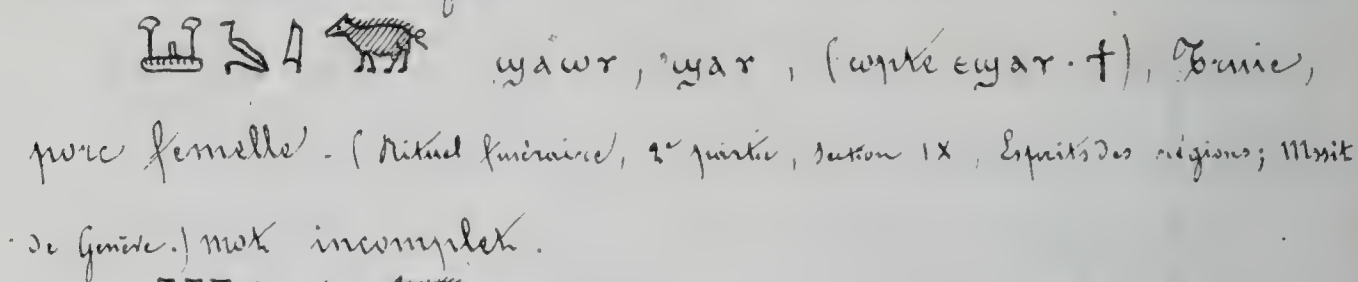 ϣⲁⲱⲣ, ϣⲁⲣ, (ⲉϣⲁⲣ · †), Truie,
porc femelle. (Rituel funéraire, 2e partie, section IX, Esprits des régions; Mssit
de Genève.) mot incomplet.